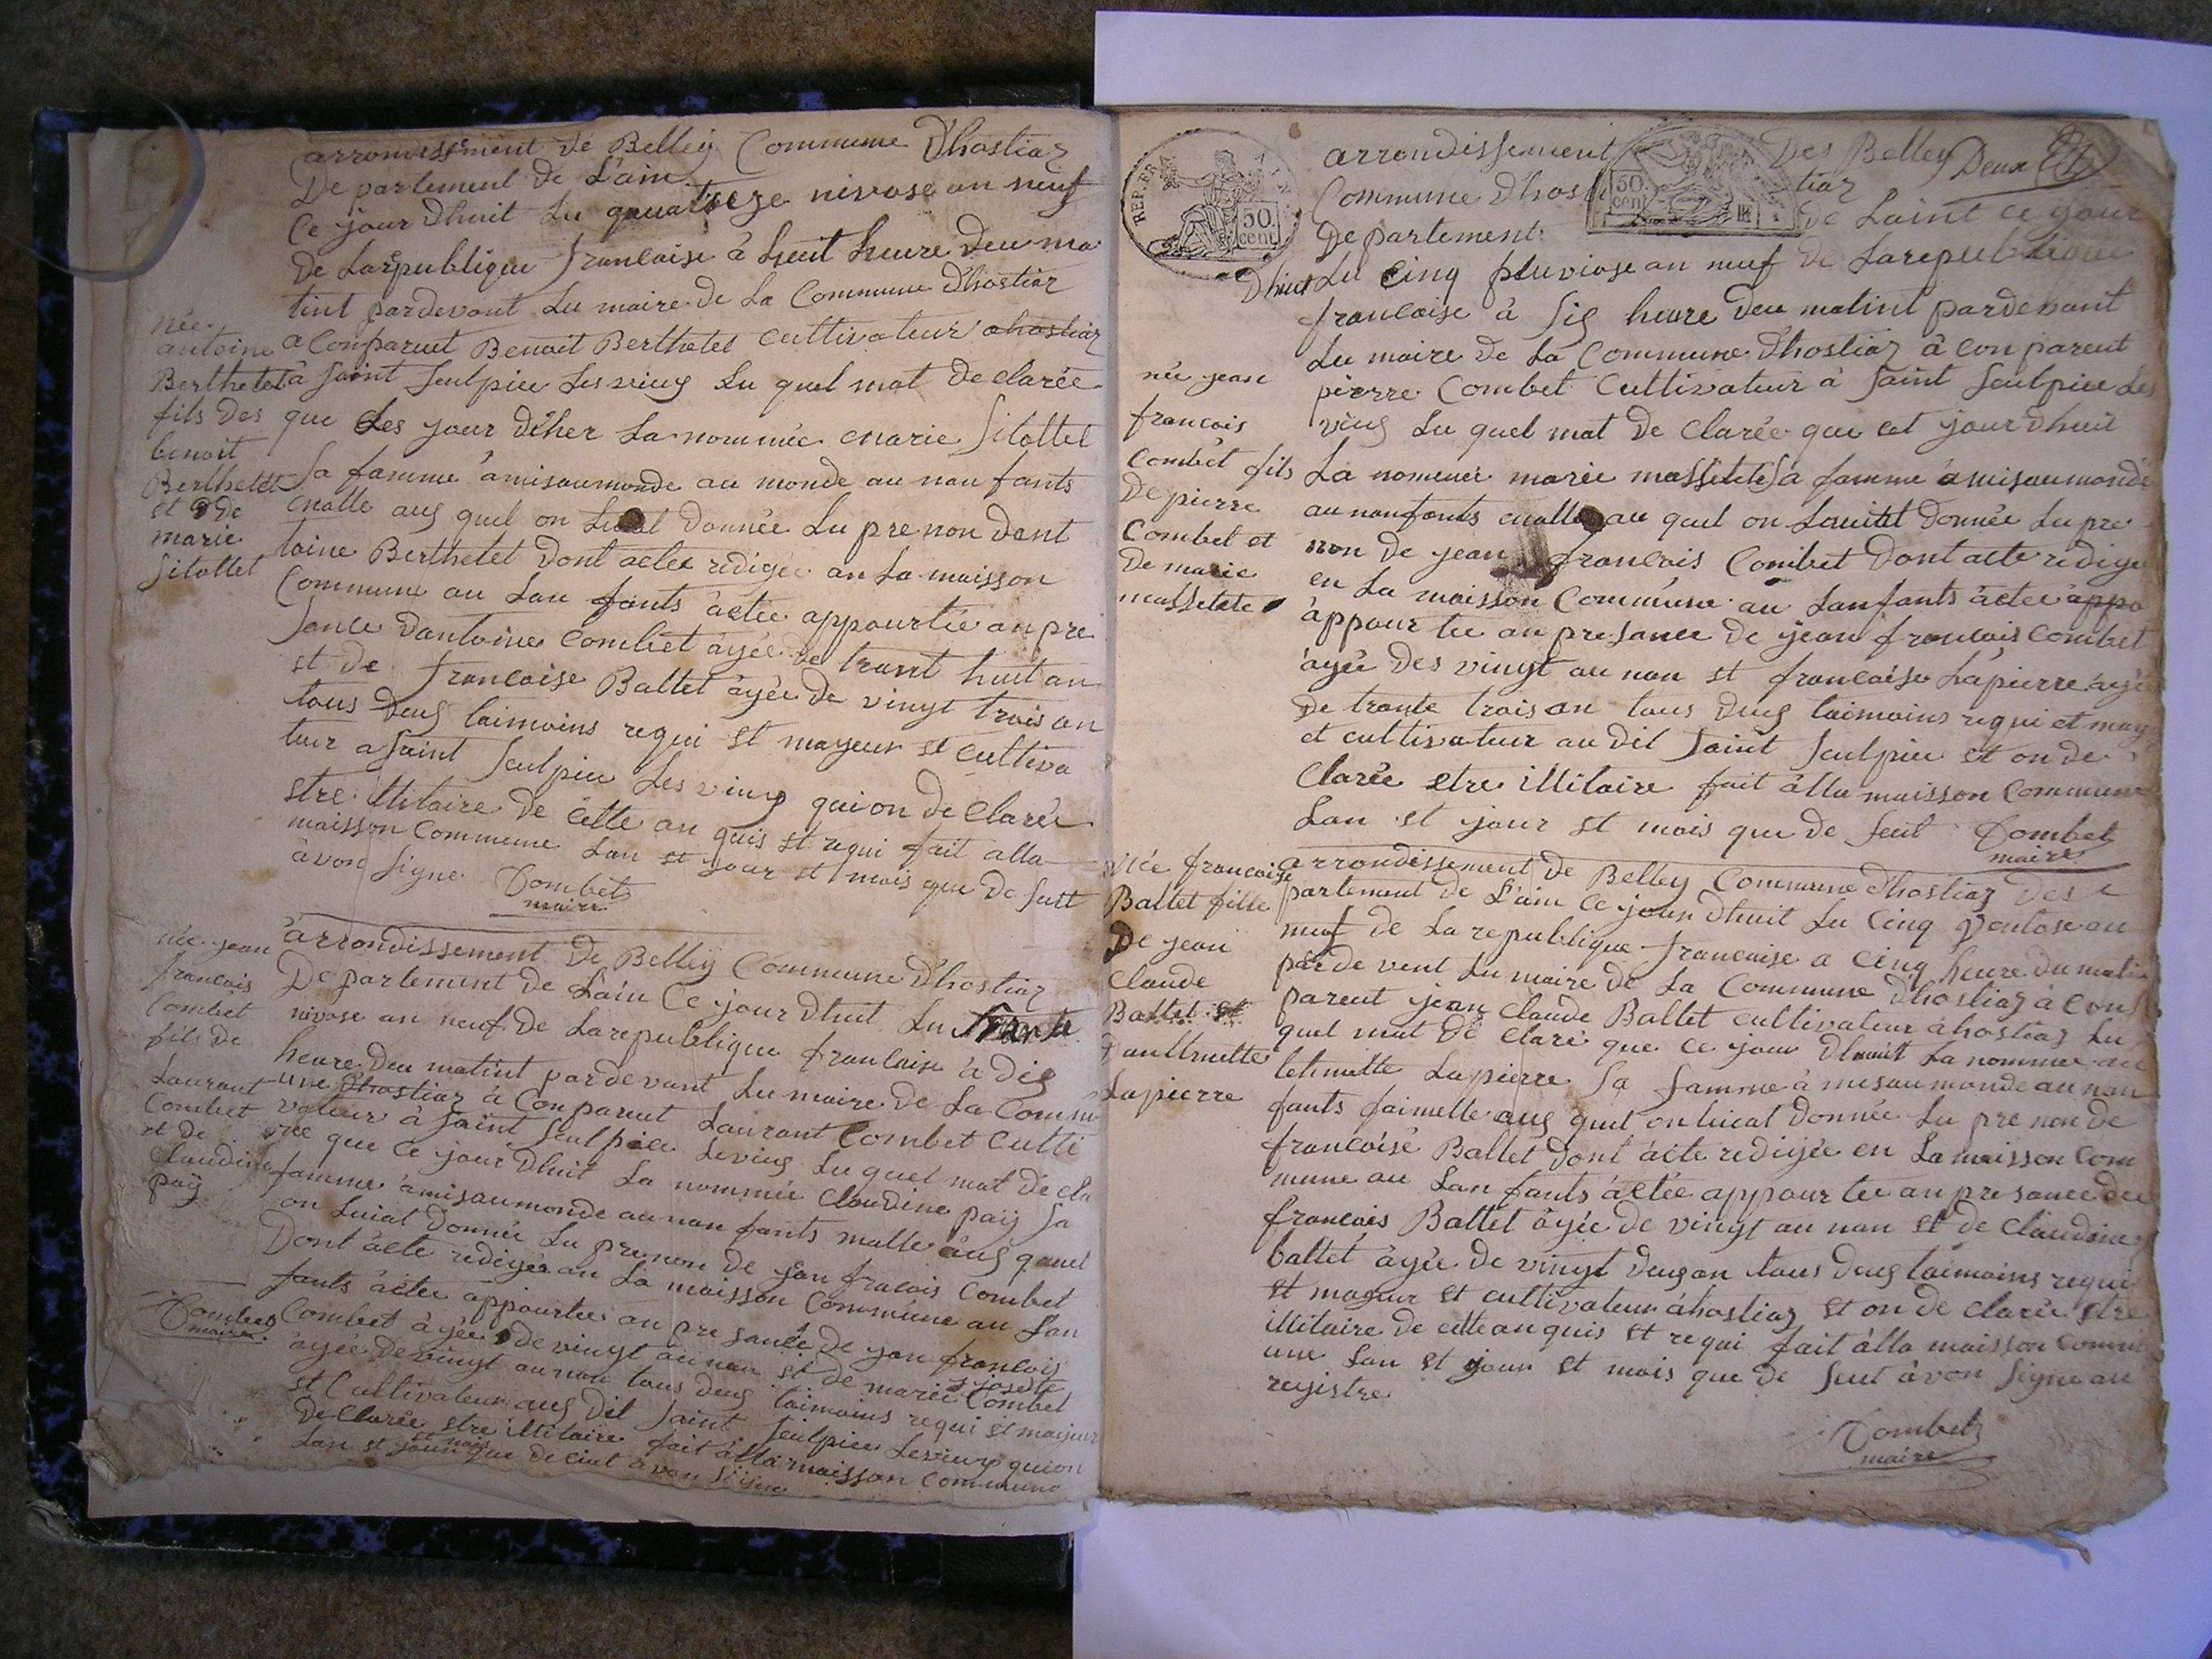 arrondissement de Belley Commune Dhostiaz
De partement de L'ain
Ce jour Dhuit Lu quuatoseze nivose an neuf
De Larepublique francaise à heuit heure deu ma
tint pardevant Lu maire de La Commune dhostiaz
a Comparuet Benoit Berthetet Cultivateur ahostiaz
à saint seulpice Lesvieuy Lu quel mat De clarée
que Les jour dhier La nommée marie silottet
sa famme amisaumonde au monde au nan fants
malle auy quel on donnée Lu pre non dant
toine Berthetet Dont acte redigée an La maisson
Commune au Lan fants actée appourtée an pre
sance dantoine Combet âyée de trant huit an
st de francoise Ballet âyée de vingt trois an
tous Deuy taimoins requi st mayeur st cultiva
teur a saint seulpice Les vieuy qui on De clarée
stre illitaire de cette an quis st requi fait alla
maisson Commune Lan st jour st mois que De sut
avon signe Combet
maire
née
antoine
Berthetet
fils Des
benoit
Berthetet
et de
marie
silottet
arrondissement De Belley Commune Dhostiaz
De partement de Lain Ce jour Dhuit Lu trante
nivose an neuf De Larepublique francaise à diy
heure Deu matint pardevant Lu maire de La Commu
une Dhostiaz à Conparuet Laurant Combet Culti
vateur à saint seulpice Levieuy Lu quel mat De cla
ree que Ce jour Dhuit La nommée Claudine pay sa
famme amisaumonde aunan fants malle auy quuel
on Luiat Donnée Lu pre non De jan fracois Combet
Dont acte redigée an La maisson Commune au Lan
fants actee appourtee an pre sance De yan francois
Combet âyée de vingt aunan st de marie josette Combet
âyée De vingt aunan tous deuy taimoins requi st mayeur
st Cultivateur auy Dit saint seulpice Levieuy quion
De Clarée stre illitaire fait alla maisson Commune
Lan st jour st mois que de ciut avon signe
née jean
francois
Combet
fils de
Laurant
Combet
et de
Claudine
pay
Combet
maire
REP. FR
50
cent
50
cent
arrondissement Des Belley Deux
Commune Dhostiaz
De partement De Laint Ce jour
Dhuit Lu cinq pluviose an neuf De Larepublique
francaise à siy heure Deu matint pardevant
Lu maire de La Commune Dhostiaz à conparuet
pierre Combet Cultivateur à saint seulpice Les
vieuy Lu quel mat De clarée que cet jour Dhuit
La nommée marie massetete sa famme amisaumonde
au nanfants malle au quel on Luiat donnée Lu pre
non de jean francois Combet Dont acte redige
en La maisson Commune au Lanfants actée appo
appour tee an pre sance de jean francois Combet
âyée Des vingt au nan st francoise Lapierre âyée
De trante trois an tous deuy taimoins requi et may
et cultivateur au dit saint seulpice st on de
Clarée stre illitaire fait alla maisson Commune
Lan st jour st mois que de seut Combet
maire
née jean
francois
Combet fils
De pierre
Combet et
De marie
massetete
arrondissement De Belley Commune dhostiaz Des
partement De Lain Ce jour Dhuit Lu Cinq Ventose an
neuf de La republique francaise a cinq heure du mati
par de vent Lu maire de La Commune Dhostiaz à con
parent jean Claude Ballet cultivateur ahostiaz Lu
quel mat De claré que Ce jour Dhuit La nommee an
lelmette Lapierre sa famme à mesaumonde au nan
fants faimelle auy quel on luiat donnée Lu pre non de
francoise Ballet Dont acte redigée en La maisson Com
mune au Lan fants actée appour tee an pre sance de
francois Ballet âyée de vingt au nan st de Claudine
ballet âyée de vingt deuy an tous deuy taimoins requi
st mayeur st cultivateur ahostiaz st on de clarée stre
illitaire de cette an quis st requi fait alla maisson Comm
une Lan st jour st mois que de seut avon signe au
registre
Combet
maire
née francoise
Ballet fille
De jean
Claude
Ballet et
Lapierre